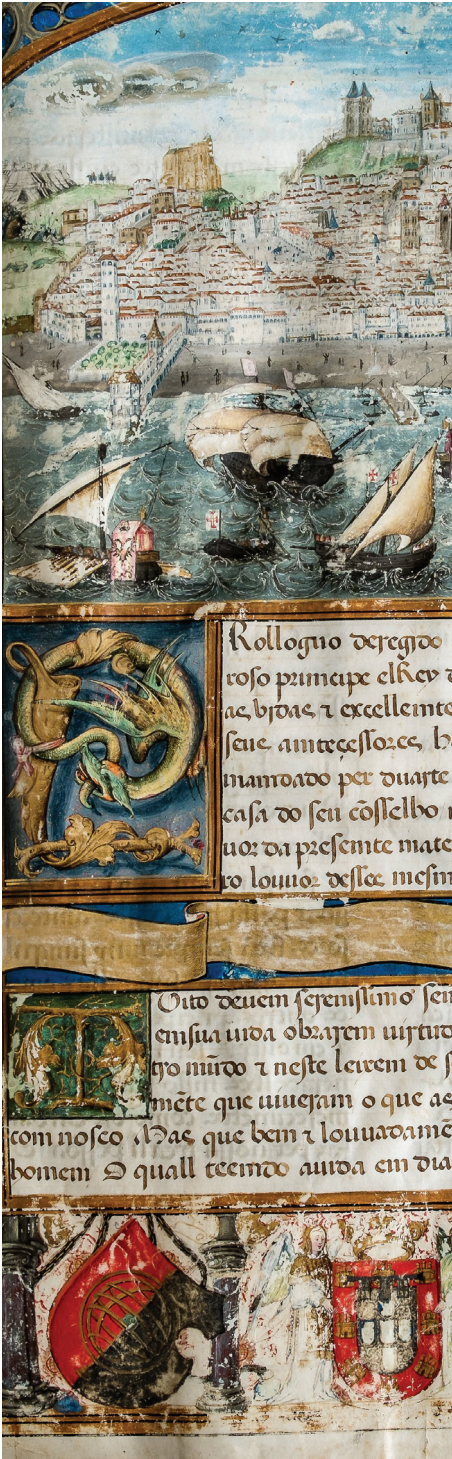 Rolloguo deregido
roso principe elRey d
as vidas ⁊ excellente
seus antecessores, h
mandado per duarte
casa do seu cõsselho
uor da presente mate
ro louuor desses mesm
Uito deuem serenissimo sen
em sua uida obrarem uirtud
tro mũdo ⁊ neste leixem de s
mẽte que uiueram o que as
com nosco Mas que bem ⁊ louuadamẽ
homem O quall teendo auida em dia